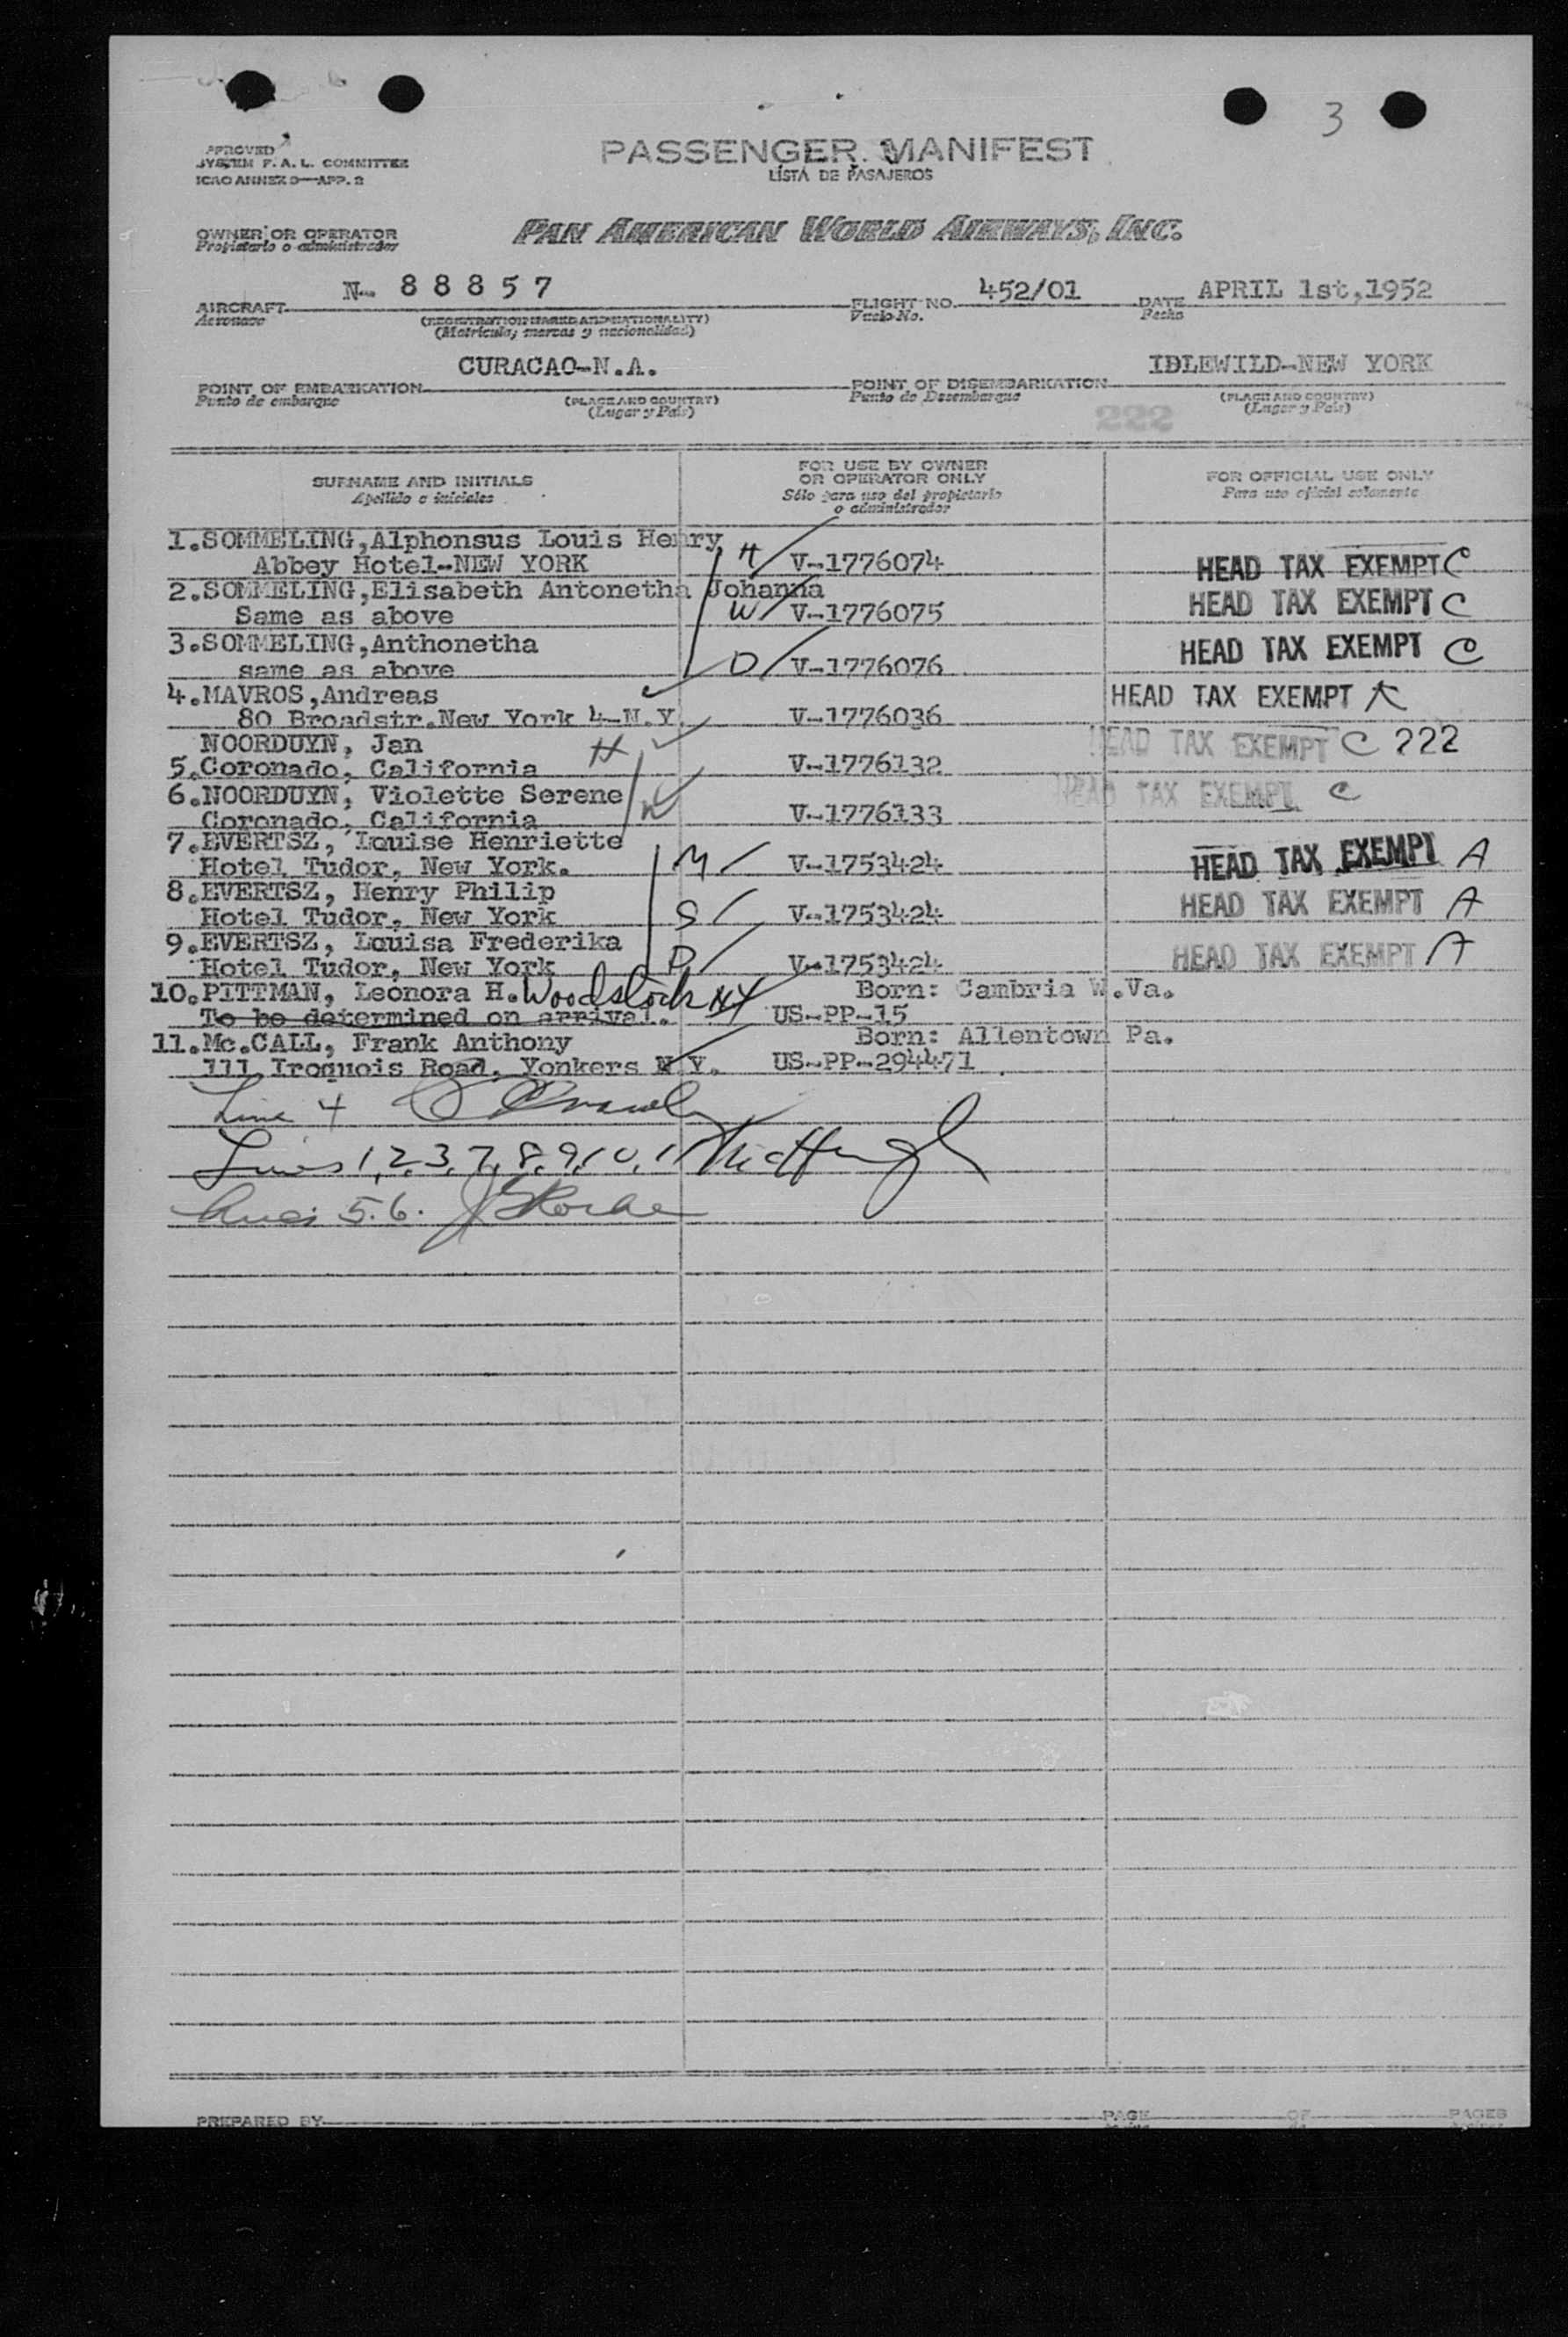 3
APPROVED
SYSTEM F. A. L. COMMITTEE
ICAO ANNEX 9—APP. 2
PASSENGER MANIFEST
LISTA DE PASAJEROS
OWNER OR OPERATOR
Propietario o administrador
PAN AMERICAN WORLD AIRWAYS, INC.
AIRCRAFT N- 88857 FLIGHT NO. 452/01 DATE APRIL 1st,1952
Aeronave (REGISTRATION MARKS AND NATIONALITY) Vuelo No. Fecha
(Matricula, marcas y nacionalidad)
POINT OF EMBARKATION CURACAO-N.A. POINT OF DISEMBARKATION IDLEWILD-NEW YORK
Punto de embarque (PLACE AND COUNTRY) Punto de Desembarque (PLACE AND COUNTRY)
(Lugar y Pais) (Lugar y Pais)
222
SURNAME AND INITIALS FOR USE BY OWNER OR OPERATOR ONLY FOR OFFICIAL USE ONLY
Apellido e iniciales Sólo para uso del propietario o administrador Para uso oficial solamente
1.SOMMELING,Alphonsus Louis Henry
Abbey Hotel-NEW YORK H V-1776074 HEAD TAX EXEMPT C
2.SOMMELING,Elisabeth Antonetha Johanna
Same as above W V-1776075 HEAD TAX EXEMPT C
3.SOMMELING,Anthonetha
same as above D V-1776076 HEAD TAX EXEMPT C
4.MAVROS,Andreas
80 Broadstr.New York 4-N.Y. V-1776036 HEAD TAX EXEMPT A
NOORDUYN, Jan
5.Coronado, California H V-1776132 HEAD TAX EXEMPT C 222
6.NOORDUYN, Violette Serene
Coronado, California W V-1776133 HEAD TAX EXEMPT C
7.EVERTSZ, Louise Henriette
Hotel Tudor, New York. M V-1753424 HEAD TAX EXEMPT A
8.EVERTSZ, Henry Philip
Hotel Tudor, New York S V-1753424 HEAD TAX EXEMPT A
9.EVERTSZ, Louisa Frederika
Hotel Tudor, New York D V-1753424 HEAD TAX EXEMPT A
10.PITTMAN, Leonora H. Woodstock NY Born: Cambria W.Va.
To be determined on arrival. US-PP-15
11.Mc.CALL, Frank Anthony Born: Allentown Pa.
111 Iroquois Road, Yonkers N.Y. US-PP-294471
Line 4
Lines 1,2,3,7,8,9,10,11
Lines 5.6.
PREPARED BY PAGE OF PAGES